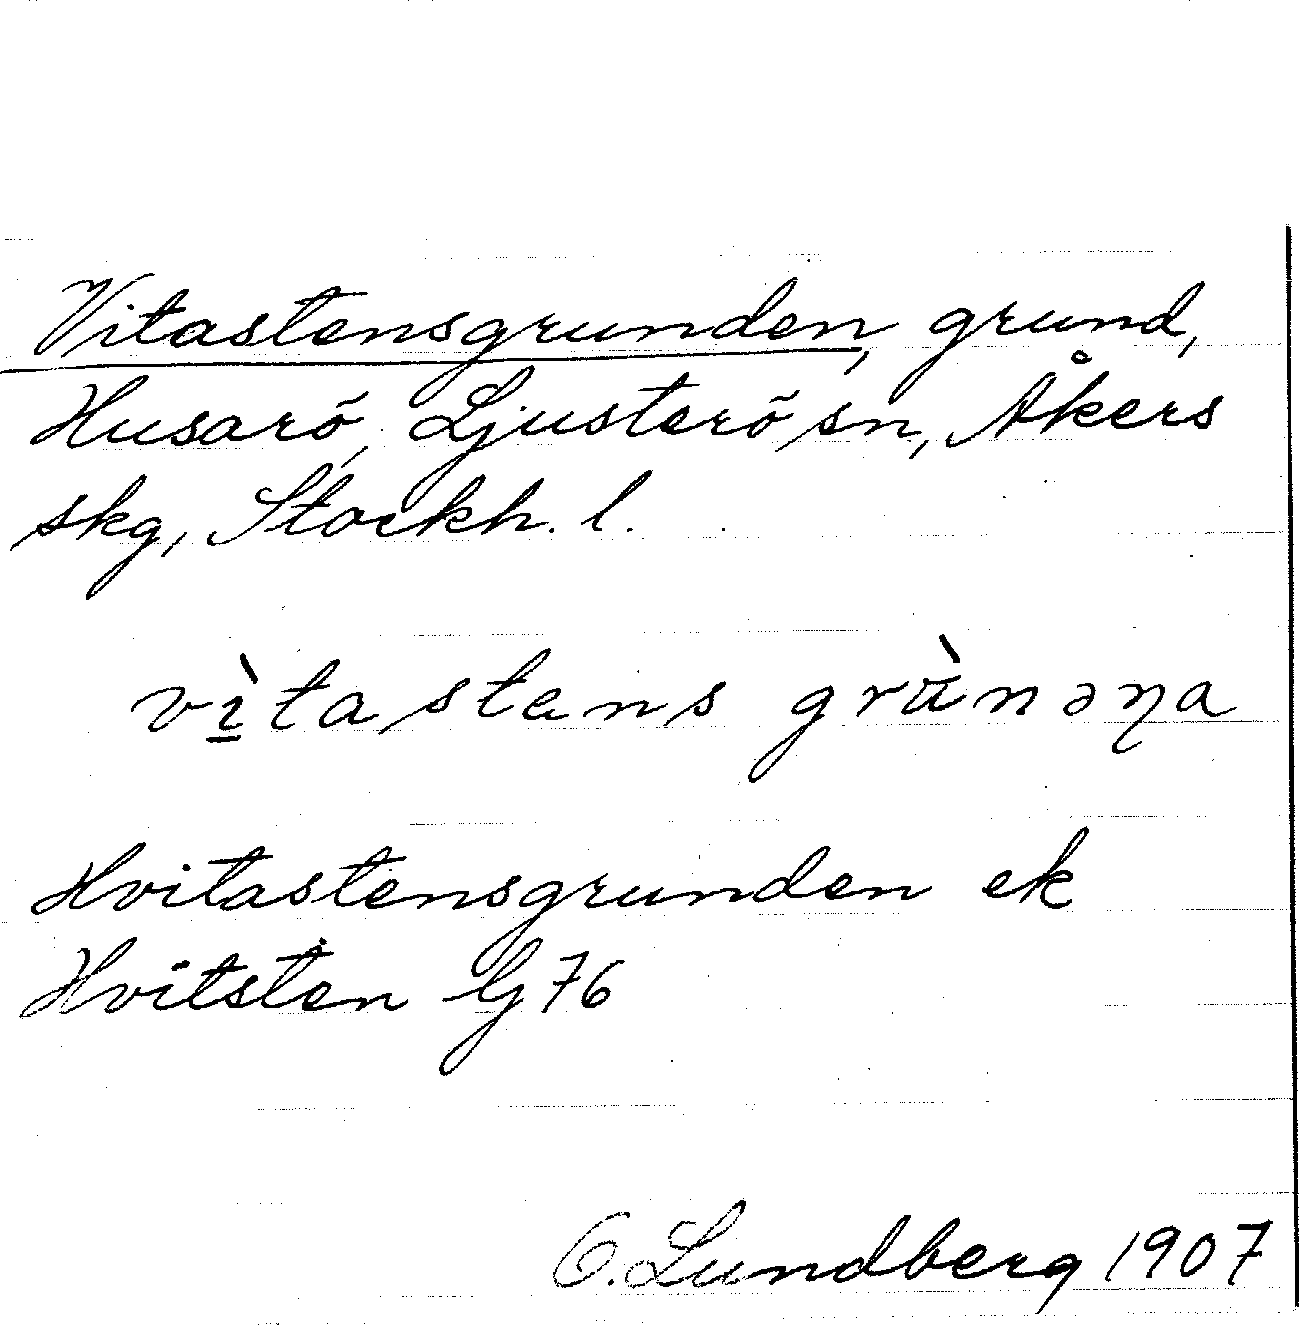 Vitastensgrunden, grund,
Husarö, Ljusterö sn, Åkers
skg, Stockh. l.
vì̱tastens grùnəɳa
Hvitastensgrunden ek
Hvitsten G 76
O. Lundberg 1907